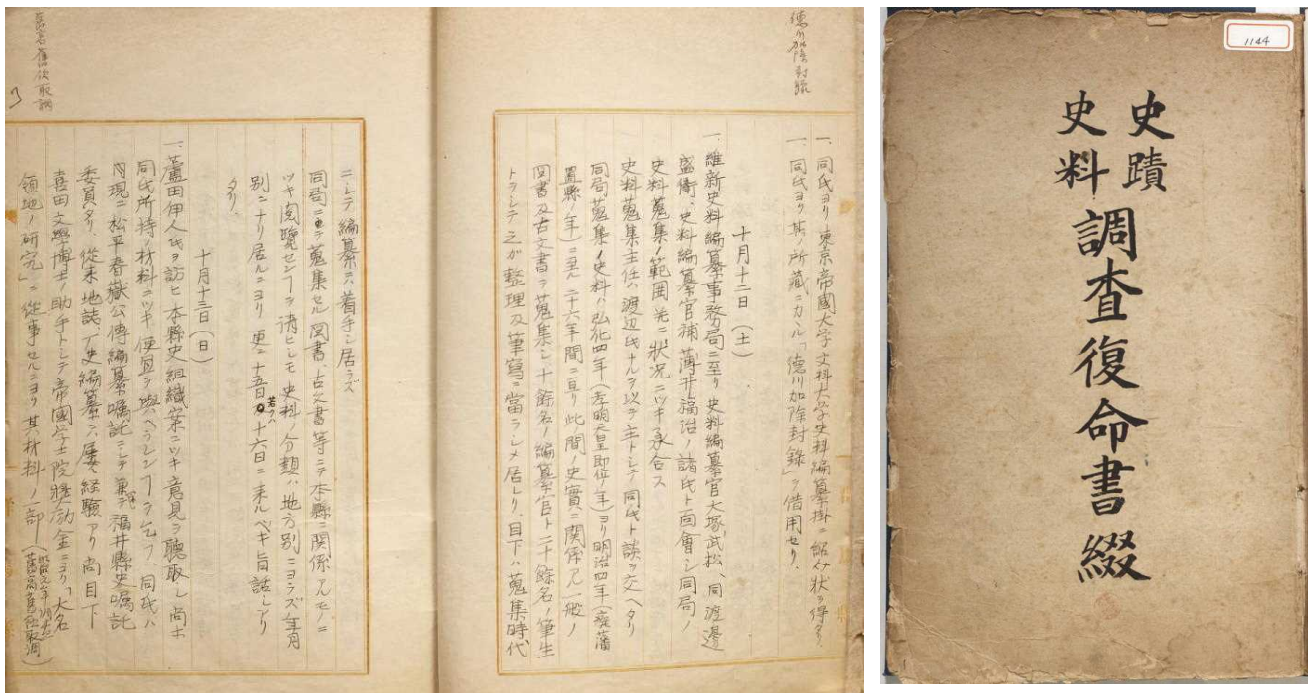 徳川加除封録
一、同氏ヨリ東京帝國大学文科大学史料編纂掛ニ紹介状ヲ得タリ、
一、同氏ヨリ其ノ所藏ニカル「徳川加除封録」ヲ借用セリ、
十月十二日（土）
一、維新史料編纂事務局ニ至リ史料編纂官大塚武松、同渡邊
盛衛、史料編纂官補薄井福治ノ諸氏ト面會シ同局ノ
史料蒐集ノ範囲並ニ状況ニツキ承合ス
史料蒐集主任ハ渡辺氏ナルヲ以テ主トシテ同氏ト談ヲ交ヘタリ
同局蒐集ノ史料ハ弘化四年（孝明天皇即位ノ年）ヨリ明治四年（廃藩
置縣ノ年）ニ至ル二十六年間ニ亘リ此ノ間ノ史實ニ関係アル一般ノ
図書及古文書ヲ蒐集シ十餘名ノ編纂官ト二十餘名ノ筆生
トヲシテ之ガ整理及筆寫ニ當ラシメ居レリ、目下ハ蒐集時代
ニシテ編纂ニハ着手シ居ラズ
同局ニ蒐集セル図書、古文書等ニテ本縣ニ関係アルモノニ
ツキ閲覧センコトヲ請ヒシモ史料ノ分類ハ地方別ニヨラズ年月
別ニナリ居ルニヨリ更ニ十五日若クハ十六日ニ来ルベキ旨話レリ
タリ、
十月十三日（日）
一、蘆田伊人氏ヲ訪ヒ本縣史組織案ニツキ意見ヲ聴取シ尚ホ
同氏所持ノ材料ニツキ便宜ヲ與ヘラレンコトヲ乞フ、同氏ハ
目現ニ松平春嶽公傳編纂嘱託ニシテ兼テ福井縣史嘱託
委員タリ、従来地誌ノ史編纂ニハ屢経験アリ尚目下
喜田文學博士ノ助手トシテ帝國学士院奨励金ニヨリ「大名
領地ノ研究」ニ従事セルニヨリ其材料ノ一部（
舊高舊領取調
史蹟
史料
調査復命書綴
1144